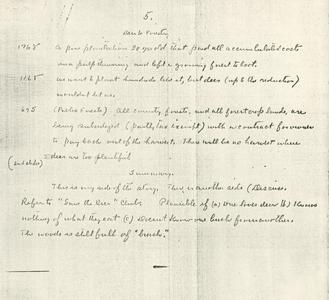 5.
1965 A pine plantation 20 yrs old that paid all accumulated costs
in a pulp thinning and left a growing forest to boot.
1165 We want to plant hundreds like it, but deer (up to the reduction)
wouldn't let us.
695 (Public Forests) All county forests, and all forest crop lands, are
being subsidized (partly tax exempt) with a contract forowner
to pay back out of the harvest. There will be no harvest where
(and states) deer are too plentiful.
Summary.
This is my side of the story. There is another side (Discuss.
Refer to "Save the Deer" Clubs. Plausible if (a) one loves deer (b) Knows
nothing of what they eat (c) Doesnt know one bush from another.
The woods is still full of "brush."